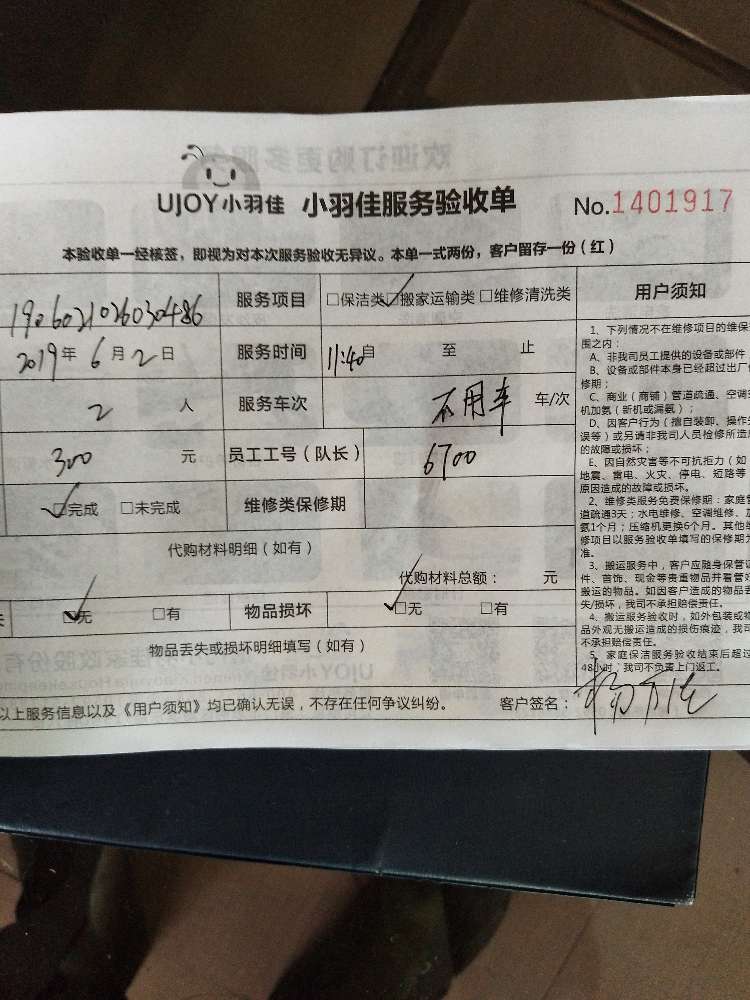 UJOY小羽佳 小羽佳服务验收单 No.1401917
本验收单一经核签，即视为对本次服务验收无异议。本单一式两份，客户留存一份（红）
1906021026030486 服务项目 □保洁类 ☑搬家运输类 □维修清洗类
2019年6月2日 服务时间 11:40自 至 止
2人 服务车次 不用车 车/次
300元 员工工号（队长） 6700
☑完成 □未完成 维修类保修期
代购材料明细（如有）
代购材料总额： 元
☑无 □有 物品损坏 ☑无 □有
物品丢失或损坏明细填写（如有）
以上服务信息以及《用户须知》均已确认无误，不存在任何争议纠纷。 客户签名：
用户须知
1、下列情况不在维修项目的维保
围之内：
A、非我司员工提供的设备或部件
B、设备或部件本身已经超过出厂
修期；
C、商业（商铺）管道疏通、空调
机加氨（新机或漏氨）；
D、因客户行为（擅自装卸、操作
误等）或另请非我司人员检修所造
的故障或损坏；
E、因自然灾害等不可抗拒力（如
地震、雷电、火灾、停电、短路等
原因造成的故障或损坏。
2、维修类服务免费保修期：家庭
道疏通3天；水电维修、空调维修、
氨1个月；压缩机更换6个月。其他
修项目以服务验收单填写的保修期
准。
3、搬运服务中，客户应随身保管
件、首饰、现金等贵重物品并看管
搬运的物品。如因客户造成的物品丢
失/损坏，我司不承担赔偿责任。
4、搬运服务验收时，如外包装或
品外观无搬运造成的损伤痕迹，我司
不承担赔偿责任。
5、家庭保洁服务验收结束后超过
48小时，我司不负责上门返工。